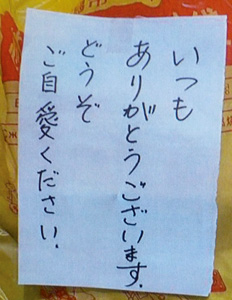 いつも
ありがとうございます.
どうぞ
ご自愛ください.